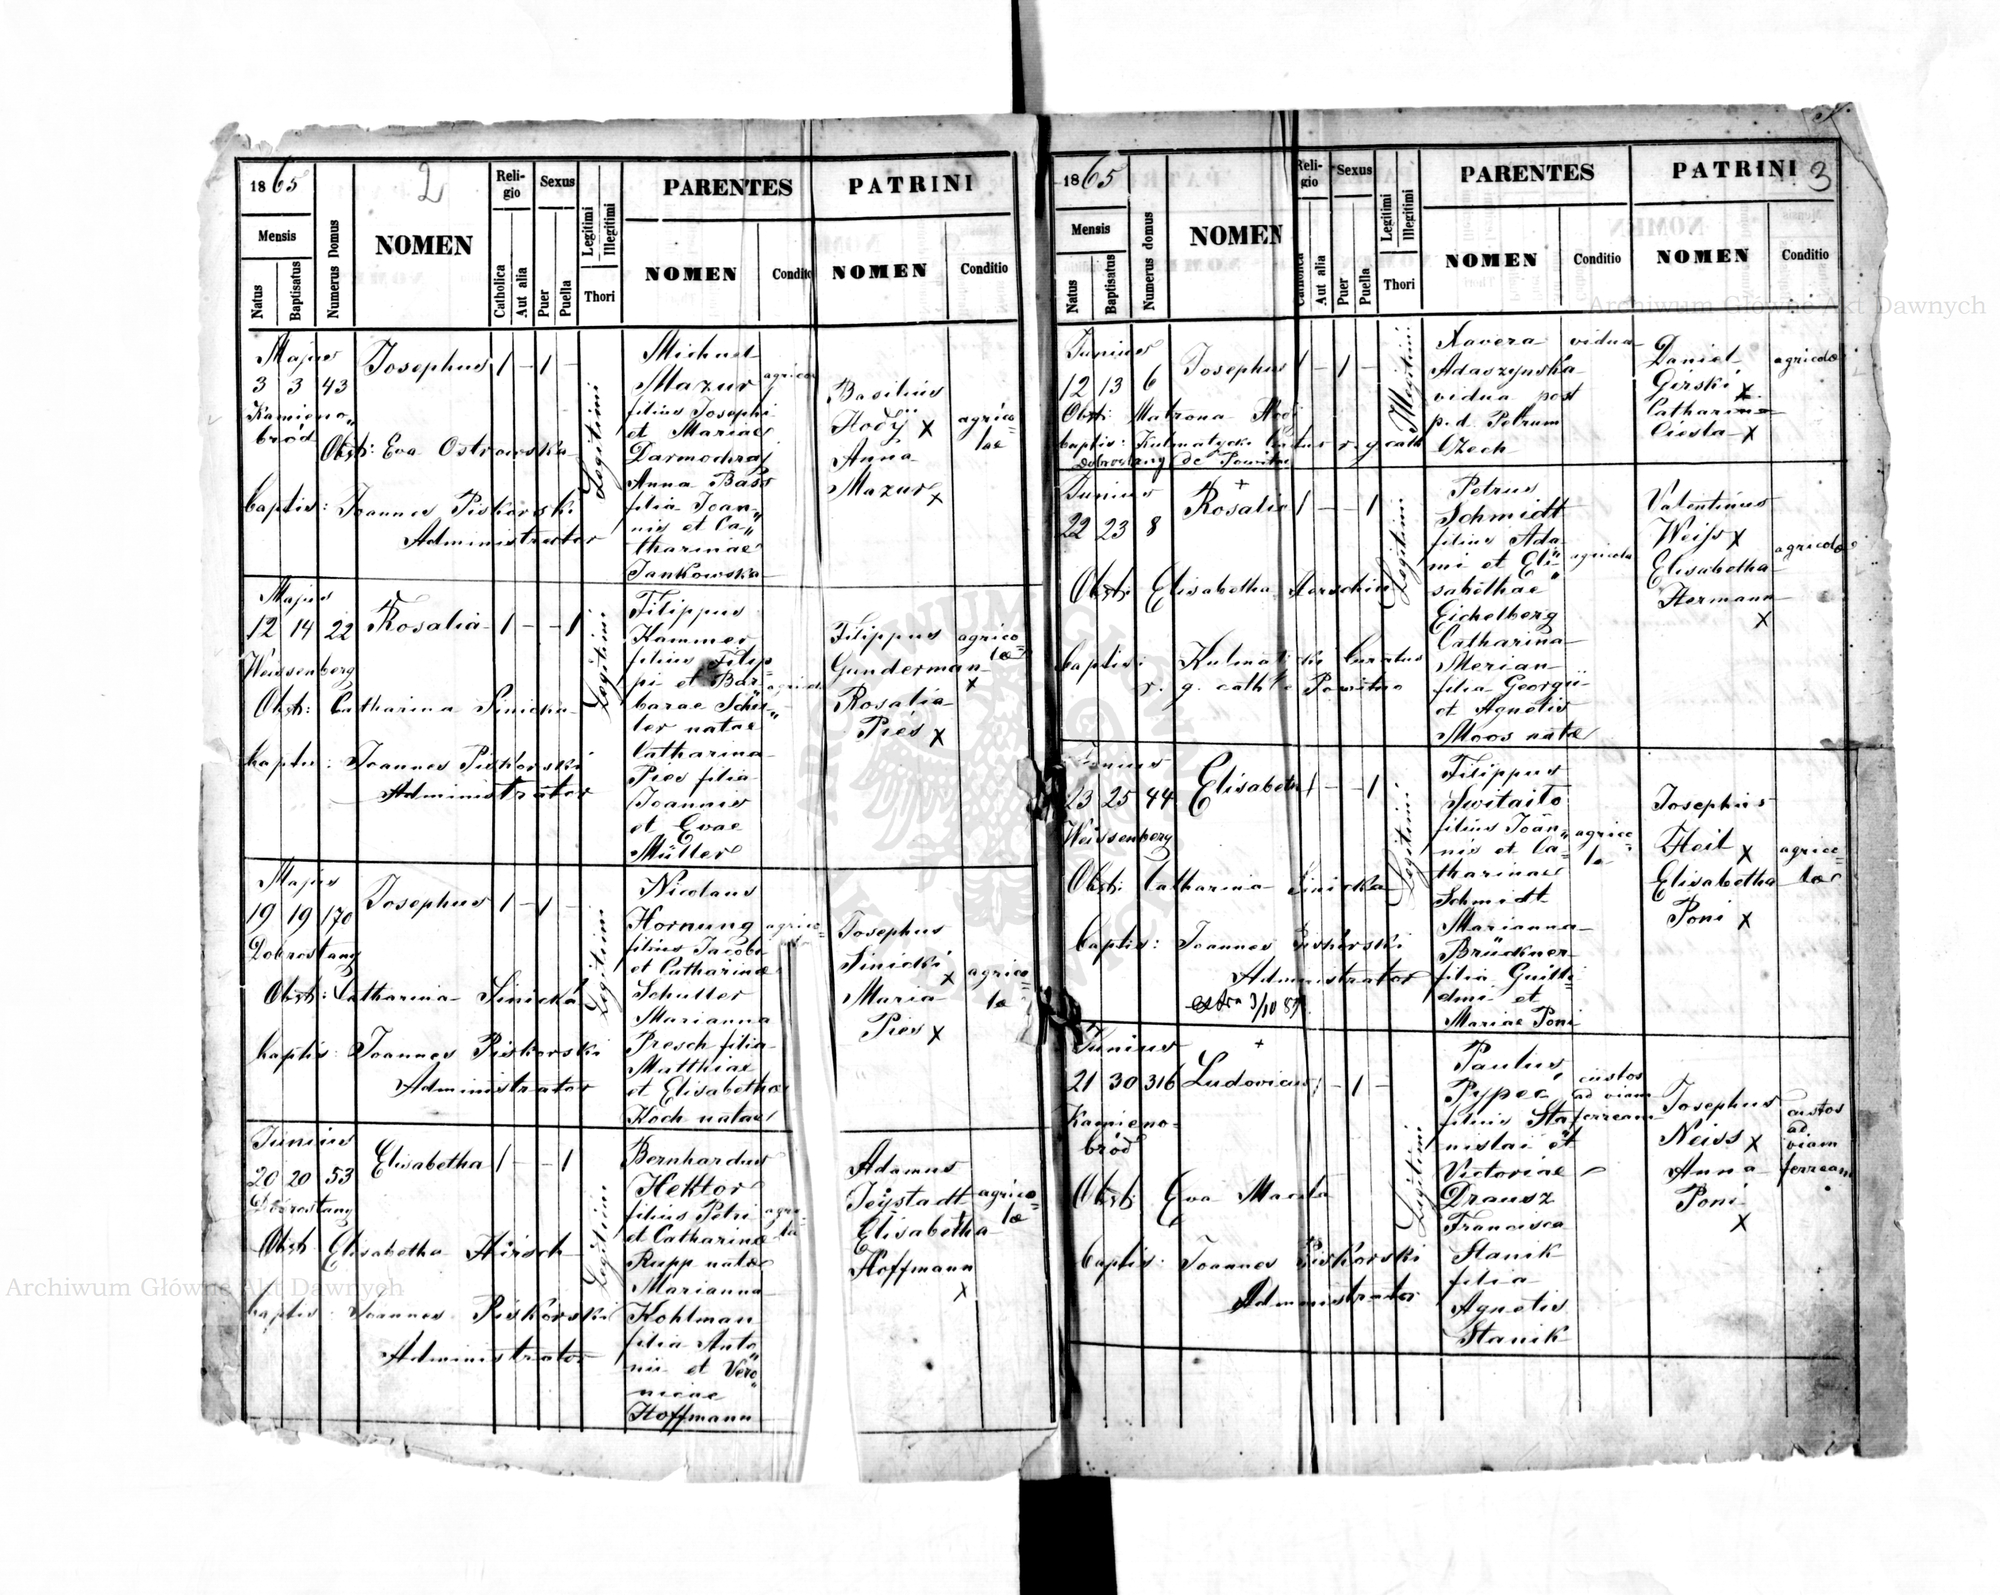 1865
2
Mensis
Natus
Baptisatus
Numerus Domus
NOMEN
Religio
Catholica
Aut alia
Sexus
Puer
Puella
Legitimi
Illegitimi
Thori
PARENTES
NOMEN
Conditio
PATRINI
NOMEN
Conditio
Majus
3 3 43
Kamieno„
bród
Josephus 1 – 1 –
Obst: Eva Ostrowska
baptis: Joannes Piskorski
Administrator
Legitimi
Michael
Mazur
filius Josephi
et Mariae
Darmochraj
Anna Bass
filia Joan„
nis et Ca„
tharinae
Jankowska
agricola
Basilius
Hody X
Anna
Mazur X
agrico=
lae
Majus
12 14 22
Weissenberg
Rosalia 1 – – 1
Obst: Catharina Sinicka
baptis: Joannes Piskorski
Administrator
Legitimi
Filippus
Kammer
filius Filip=
pi et Bar=
barae Schü„
ler natae
Catharina
Pies filia
Joannis
et Evae
Müller
Filippus
Gunderman
X
Rosalia
Pies X
agrico
lae
Majus
19 19 170
Dobrostany
Josephus 1 – 1 –
Obst: Catharina Sinicka
baptis: Joannes Piskorski
Administrator
Legitimi
Nicolaus
Hornung
filius Jacobi
et Catharinae
Schutter
Marianna
Presch filia
Matthiae
et Elisabethae
Koch natae
agrico=
Josephus
Sinicki
X
Maria
Pies X
agrico=
lae
Junius
20 20 53
Dobrostany
Elisabetha 1 – – 1
Obst: Elisabetha Hirsch
baptis: Joannes Piskorski
Administrator
Legitimi
Bernhardus
Hektor
filius Petri
et Catharinae
Rupp natae
Marianna
Kohlman
filia Anto
nii et Vero„
nicae
Hoffmann
agrico=
la
Adamus
Jeystadt
Elisabetha
Hoffmann
X
agrico=
lae
1865
3
Mensis
Natus
Baptisatus
Numerus domus
NOMEN
Religio
Catholica
Aut alia
Sexus
Puer
Puella
Legitimi
Illegitimi
Thori
PARENTES
NOMEN
Conditio
PATRINI
NOMEN
Conditio
Junius
12 13 6
Josephus 1 – 1 –
Obst: Matrona
baptis: Kulmatycki Curatus r. g. cath
Dobrostany de Powitno
Illegitimi
Xavera
Adaszynska
vidua post
p. d. Petrum
Czech
vidua
Daniel
Girski X
Catharina
Ciesla X
agricolae
Junius
22 23 8
Rosalia 1 – – 1
Obst: Elisabetha Herschin
baptis: Kulmatycki Curatus
r. g. cath de Powitno
Legitimi
Petrus
Schmidt
filius Ada„
mi et Eli„
sabethae
Eichelberg
Catharina
Merian
filia Georgii
et Agnetis
Moos natae
agricola
Valentinus
Weiss X
Elisabetha
Hermann
X
agricolae
Junius
23 25 44
Weissenberg
Elisabeth 1 – – 1
Obst: Catharina Sinicka
baptis: Joannes Piskorski
Administrator
extra 3/10 89
Legitimi
Filippus
Switaito
filius Joan„
nis et Ca„
tharinae
Schmidt
Marianna
Brückner
filia Guill=
elmi et
Mariae Poni
agrico=
la
Josephus
Heil X
Elisabetha
Poni X
agrico=
lae
Junius
21 30 316
Kamieno-
bród
Ludovicus 1 – 1 –
Obst: Eva Macela
baptis: Joannes Piskorski
Administrator
Legitimi
Paulus
Pypec
filius Sta„
nislai et
Victoriae
Drausz
Francisca
Stanik
filia
Agnetis
Stanik
custos
ad viam
ferream
Josephus
Neiss X
Anna
Poni
X
custos
ad
viam
ferream
Archiwum Główne Akt Dawnych
Archiwum Główne Akt Dawnych